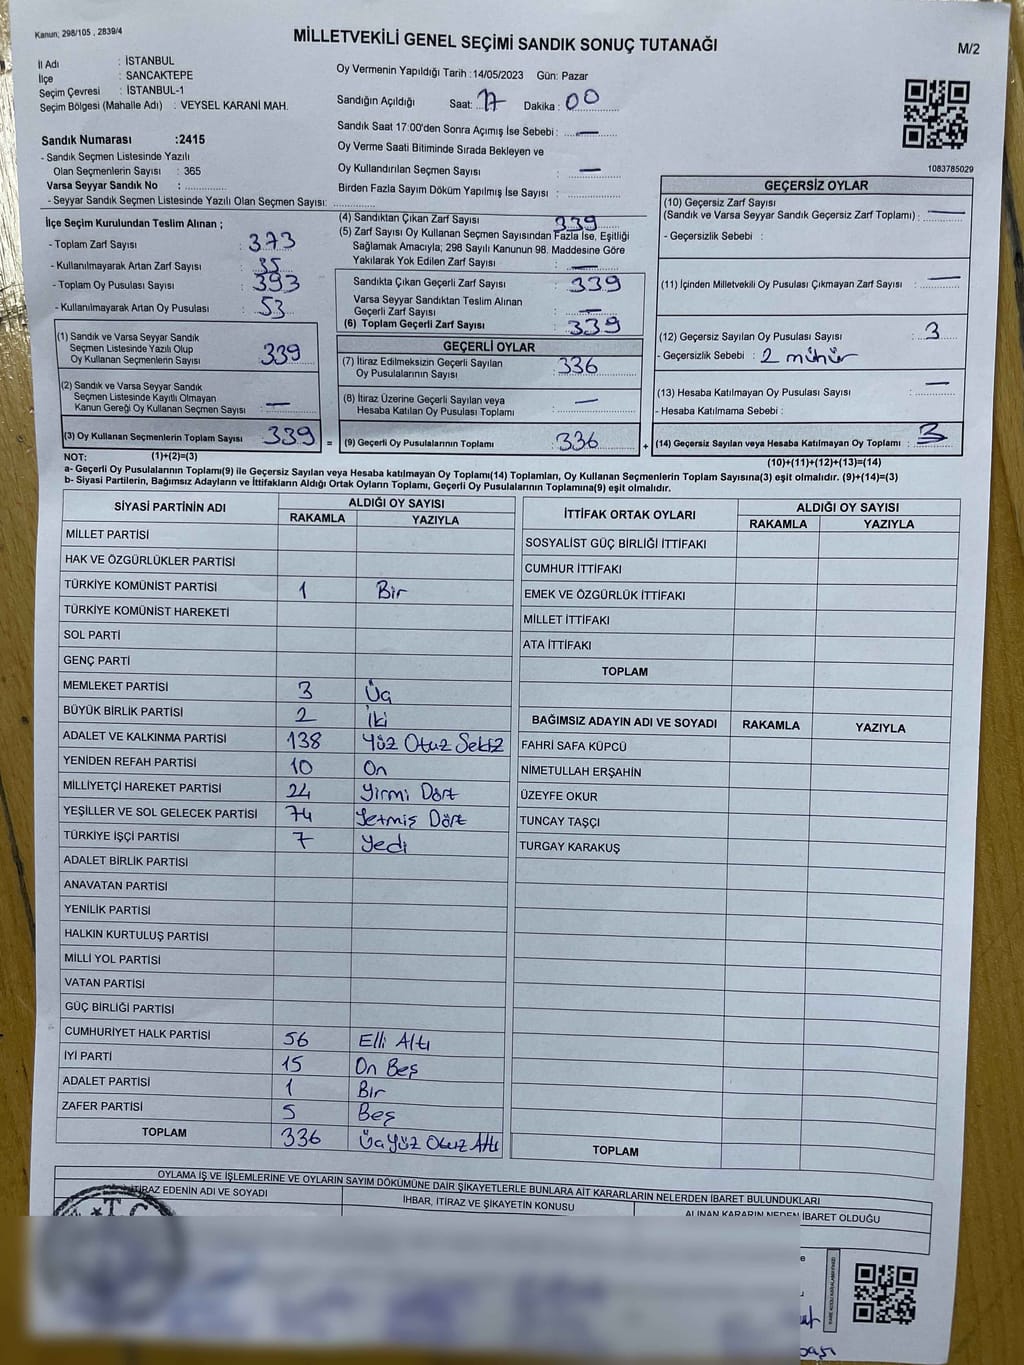 Kanun; 298/105 , 2839/4
MİLLETVEKİLİ GENEL SEÇİMİ SANDIK SONUÇ TUTANAĞI
M/2
İl Adı : İSTANBUL
İlçe : SANCAKTEPE
Seçim Çevresi : İSTANBUL-1
Seçim Bölgesi (Mahalle Adı) : VEYSEL KARANİ MAH.
Oy Vermenin Yapıldığı Tarih :14/05/2023 Gün: Pazar
Sandığın Açıldığı Saat: 17 Dakika : 00
Sandık Saat 17:00'den Sonra Açımış İse Sebebi : —
Oy Verme Saati Bitiminde Sırada Bekleyen ve
Oy Kullandırılan Seçmen Sayısı : —
Birden Fazla Sayım Döküm Yapılmış İse Sayısı :
Sandık Numarası :2415
- Sandık Seçmen Listesinde Yazılı
Olan Seçmenlerin Sayısı : 365
Varsa Seyyar Sandık No :
- Seyyar Sandık Seçmen Listesinde Yazılı Olan Seçmen Sayısı:
1083785029
İlçe Seçim Kurulundan Teslim Alınan ;
- Toplam Zarf Sayısı : 373
- Kullanılmayarak Artan Zarf Sayısı : 35
- Toplam Oy Pusulası Sayısı : 393
- Kullanılmayarak Artan Oy Pusulası : 53
(1) Sandık ve Varsa Seyyar Sandık
Seçmen Listesinde Yazılı Olup
Oy Kullanan Seçmenlerin Sayısı : 339
(2) Sandık ve Varsa Seyyar Sandık
Seçmen Listesinde Kayıtlı Olmayan
Kanun Gereği Oy Kullanan Seçmen Sayısı : —
(3) Oy Kullanan Seçmenlerin Toplam Sayısı : 339 =
(4) Sandıktan Çıkan Zarf Sayısı : 339
(5) Zarf Sayısı Oy Kullanan Seçmen Sayısından Fazla İse, Eşitliği
Sağlamak Amacıyla; 298 Sayılı Kanunun 98. Maddesine Göre
Yakılarak Yok Edilen Zarf Sayısı : —
Sandıkta Çıkan Geçerli Zarf Sayısı : 339
Varsa Seyyar Sandıktan Teslim Alınan
Geçerli Zarf Sayısı : —
(6) Toplam Geçerli Zarf Sayısı : 339
GEÇERLİ OYLAR
(7) İtiraz Edilmeksizin Geçerli Sayılan
Oy Pusulalarının Sayısı : 336
(8) İtiraz Üzerine Geçerli Sayılan veya
Hesaba Katılan Oy Pusulası Toplamı : —
(9) Geçerli Oy Pusulalarının Toplamı : 336 +
GEÇERSİZ OYLAR
(10) Geçersiz Zarf Sayısı
(Sandık ve Varsa Seyyar Sandık Geçersiz Zarf Toplamı) : —
- Geçersizlik Sebebi :
(11) İçinden Milletvekili Oy Pusulası Çıkmayan Zarf Sayısı : —
(12) Geçersiz Sayılan Oy Pusulası Sayısı : 3
- Geçersizlik Sebebi : 2 mühür
(13) Hesaba Katılmayan Oy Pusulası Sayısı : —
- Hesaba Katılmama Sebebi :
(14) Geçersiz Sayılan veya Hesaba Katılmayan Oy Toplamı : 3
NOT: (1)+(2)=(3)
(10)+(11)+(12)+(13)=(14)
a- Geçerli Oy Pusulalarının Toplamı(9) ile Geçersiz Sayılan veya Hesaba katılmayan Oy Toplamı(14) Toplamları, Oy Kullanan Seçmenlerin Toplam Sayısına(3) eşit olmalıdır. (9)+(14)=(3)
b- Siyasi Partilerin, Bağımsız Adayların ve İttifakların Aldığı Ortak Oyların Toplamı, Geçerli Oy Pusulalarının Toplamına(9) eşit olmalıdır.
SİYASİ PARTİNİN ADI ALDIĞI OY SAYISI
RAKAMLA YAZIYLA
MİLLET PARTİSİ
HAK VE ÖZGÜRLÜKLER PARTİSİ
TÜRKİYE KOMÜNİST PARTİSİ 1 Bir
TÜRKİYE KOMÜNİST HAREKETİ
SOL PARTİ
GENÇ PARTİ
MEMLEKET PARTİSİ 3 Üç
BÜYÜK BİRLİK PARTİSİ 2 iki
ADALET VE KALKINMA PARTİSİ 138 Yüz Otuz Sekiz
YENİDEN REFAH PARTİSİ 10 On
MİLLİYETÇİ HAREKET PARTİSİ 24 Yirmi Dört
YEŞİLLER VE SOL GELECEK PARTİSİ 74 Yetmiş Dört
TÜRKİYE İŞÇİ PARTİSİ 7 Yedi
ADALET BİRLİK PARTİSİ
ANAVATAN PARTİSİ
YENİLİK PARTİSİ
HALKIN KURTULUŞ PARTİSİ
MİLLİ YOL PARTİSİ
VATAN PARTİSİ
GÜÇ BİRLİĞİ PARTİSİ
CUMHURİYET HALK PARTİSİ 56 Elli Altı
İYİ PARTİ 15 On Beş
ADALET PARTİSİ 1 Bir
ZAFER PARTİSİ 5 Beş
TOPLAM 336 ÜçYüz Otuz Altı
İTTİFAK ORTAK OYLARI ALDIĞI OY SAYISI
RAKAMLA YAZIYLA
SOSYALİST GÜÇ BİRLİĞİ İTTİFAKI
CUMHUR İTTİFAKI
EMEK VE ÖZGÜRLÜK İTTİFAKI
MİLLET İTTİFAKI
ATA İTTİFAKI
TOPLAM
BAĞIMSIZ ADAYIN ADI VE SOYADI RAKAMLA YAZIYLA
FAHRİ SAFA KÜPCÜ
NİMETULLAH ERŞAHİN
ÜZEYFE OKUR
TUNCAY TAŞÇI
TURGAY KARAKUŞ
TOPLAM
OYLAMA İŞ VE İŞLEMLERİNE VE OYLARIN SAYIM DÖKÜMÜNE DAİR ŞİKAYETLERLE BUNLARA AİT KARARLARIN NELERDEN İBARET BULUNDUKLARI
İTİRAZ EDENİN ADI VE SOYADI
İHBAR, İTİRAZ VE ŞİKAYETİN KONUSU
ALINAN KARARIN NEDEN İBARET OLDUĞU
T.C.